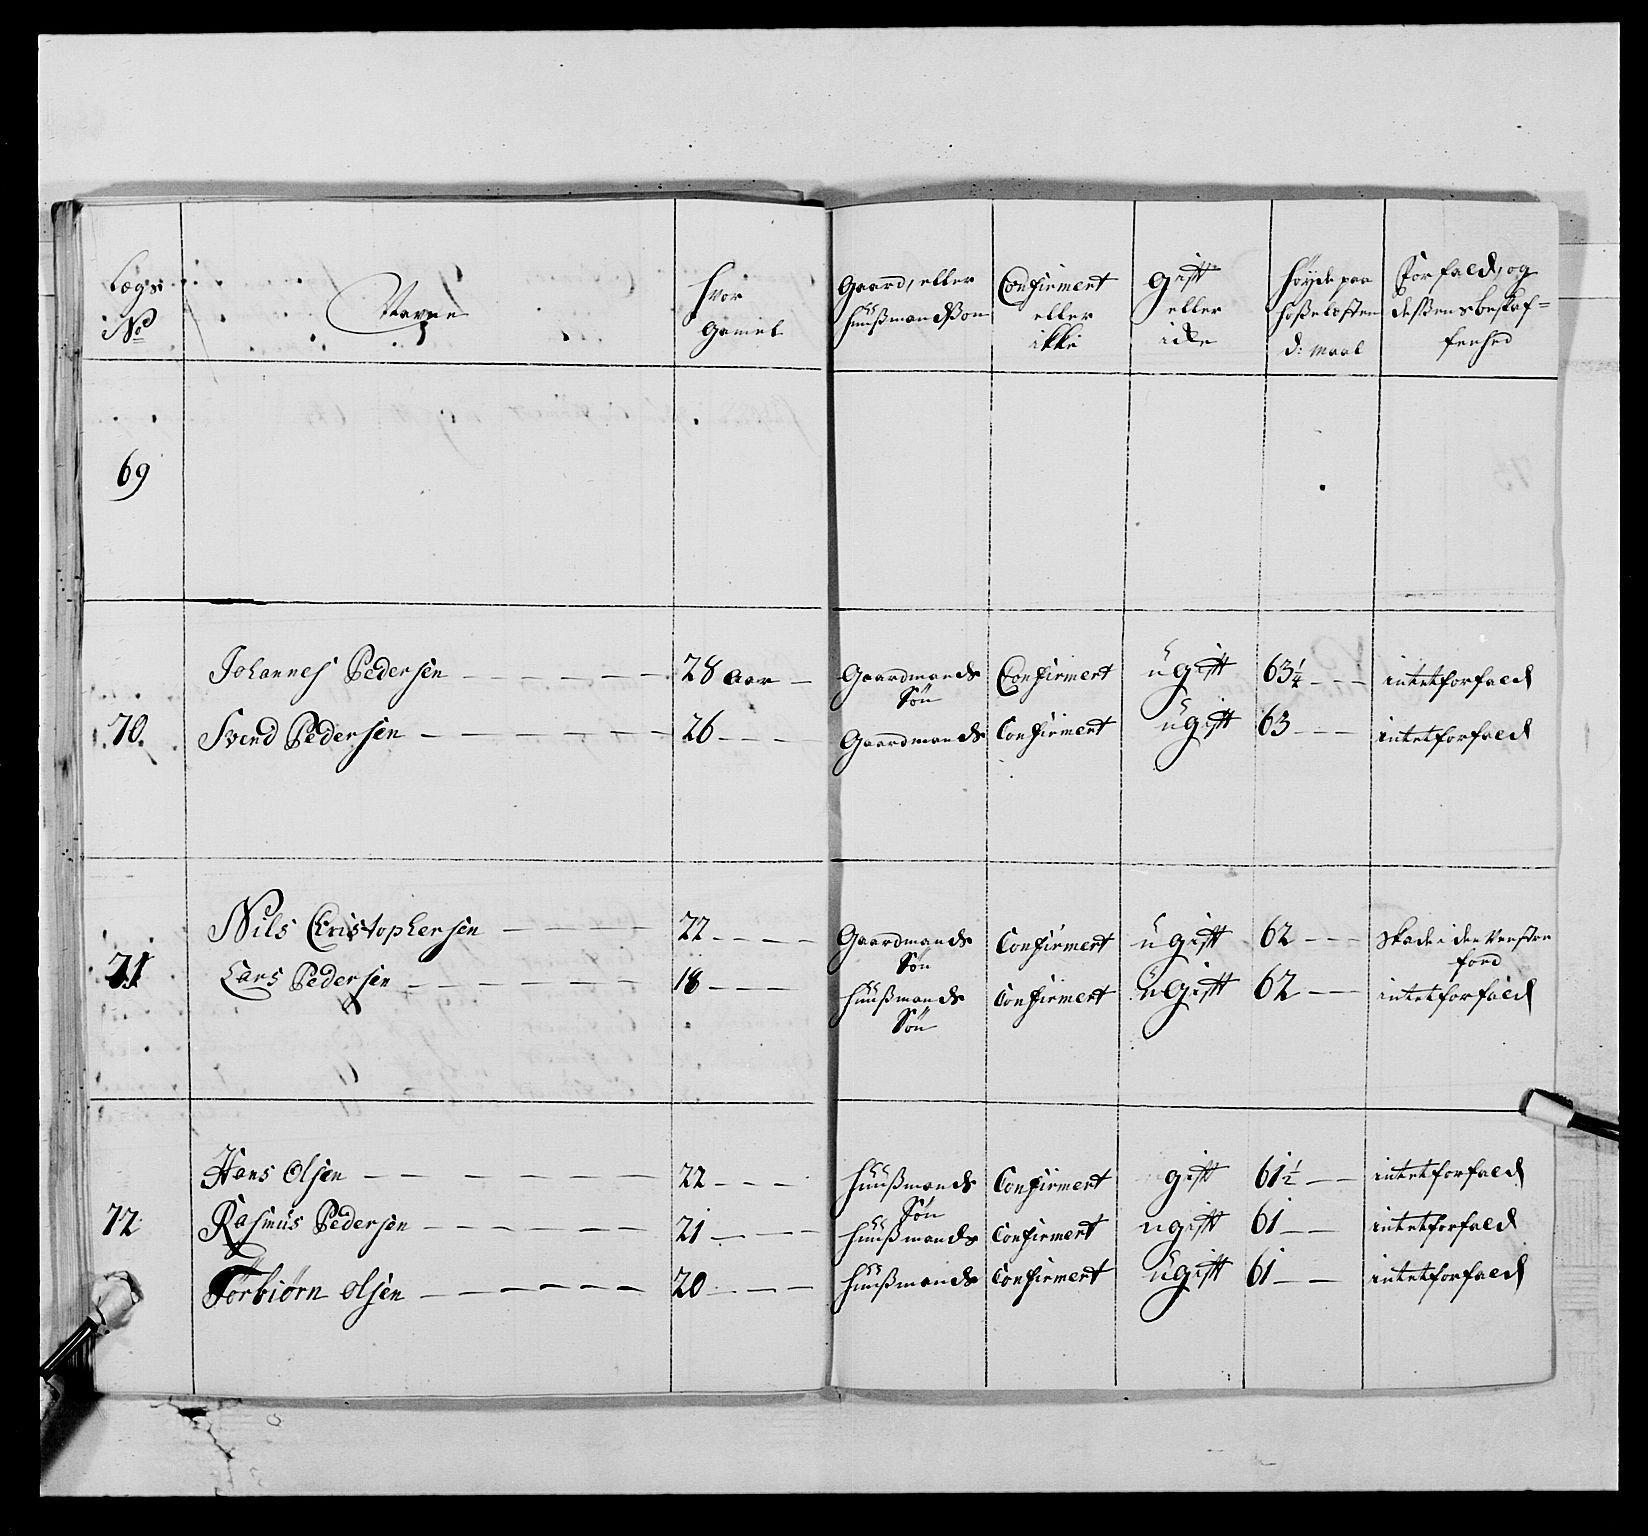 Lægs No | Navne | hvor Gamel | Gaard, eller Huußmandßon | Confirmert eller ikke | gift eller icke | Høyde paa Hoßelosten d: maal | Forfald, og deßens beskaffenhed
69
Johannes Pedersen — 28 aar — Gaardmands Søn Confirmert ugift 63¼ — intet forfald
70. Svend Pedersen — 26 — Gaardmands Confirmert ugift 63 — intet forfald
Nils Christophersen — 22 — Gaardmands Søn Confirmert ugift 62 — skade i den Venstre
71 Lars Pedersen — 18 — Huußmands Søn Confirmert ugift 62 — intet forfald
Hans Olsen — 22 — Huußmands Søn Confirmert gift 61½ — intet forfald
72 Rasmus Pedersen — 21 — Huußmands Confirmert ugift 61 — intet forfald
Torbiørn olsen — 20 — Huußmands Confirmert ugift 61 — intet forfald